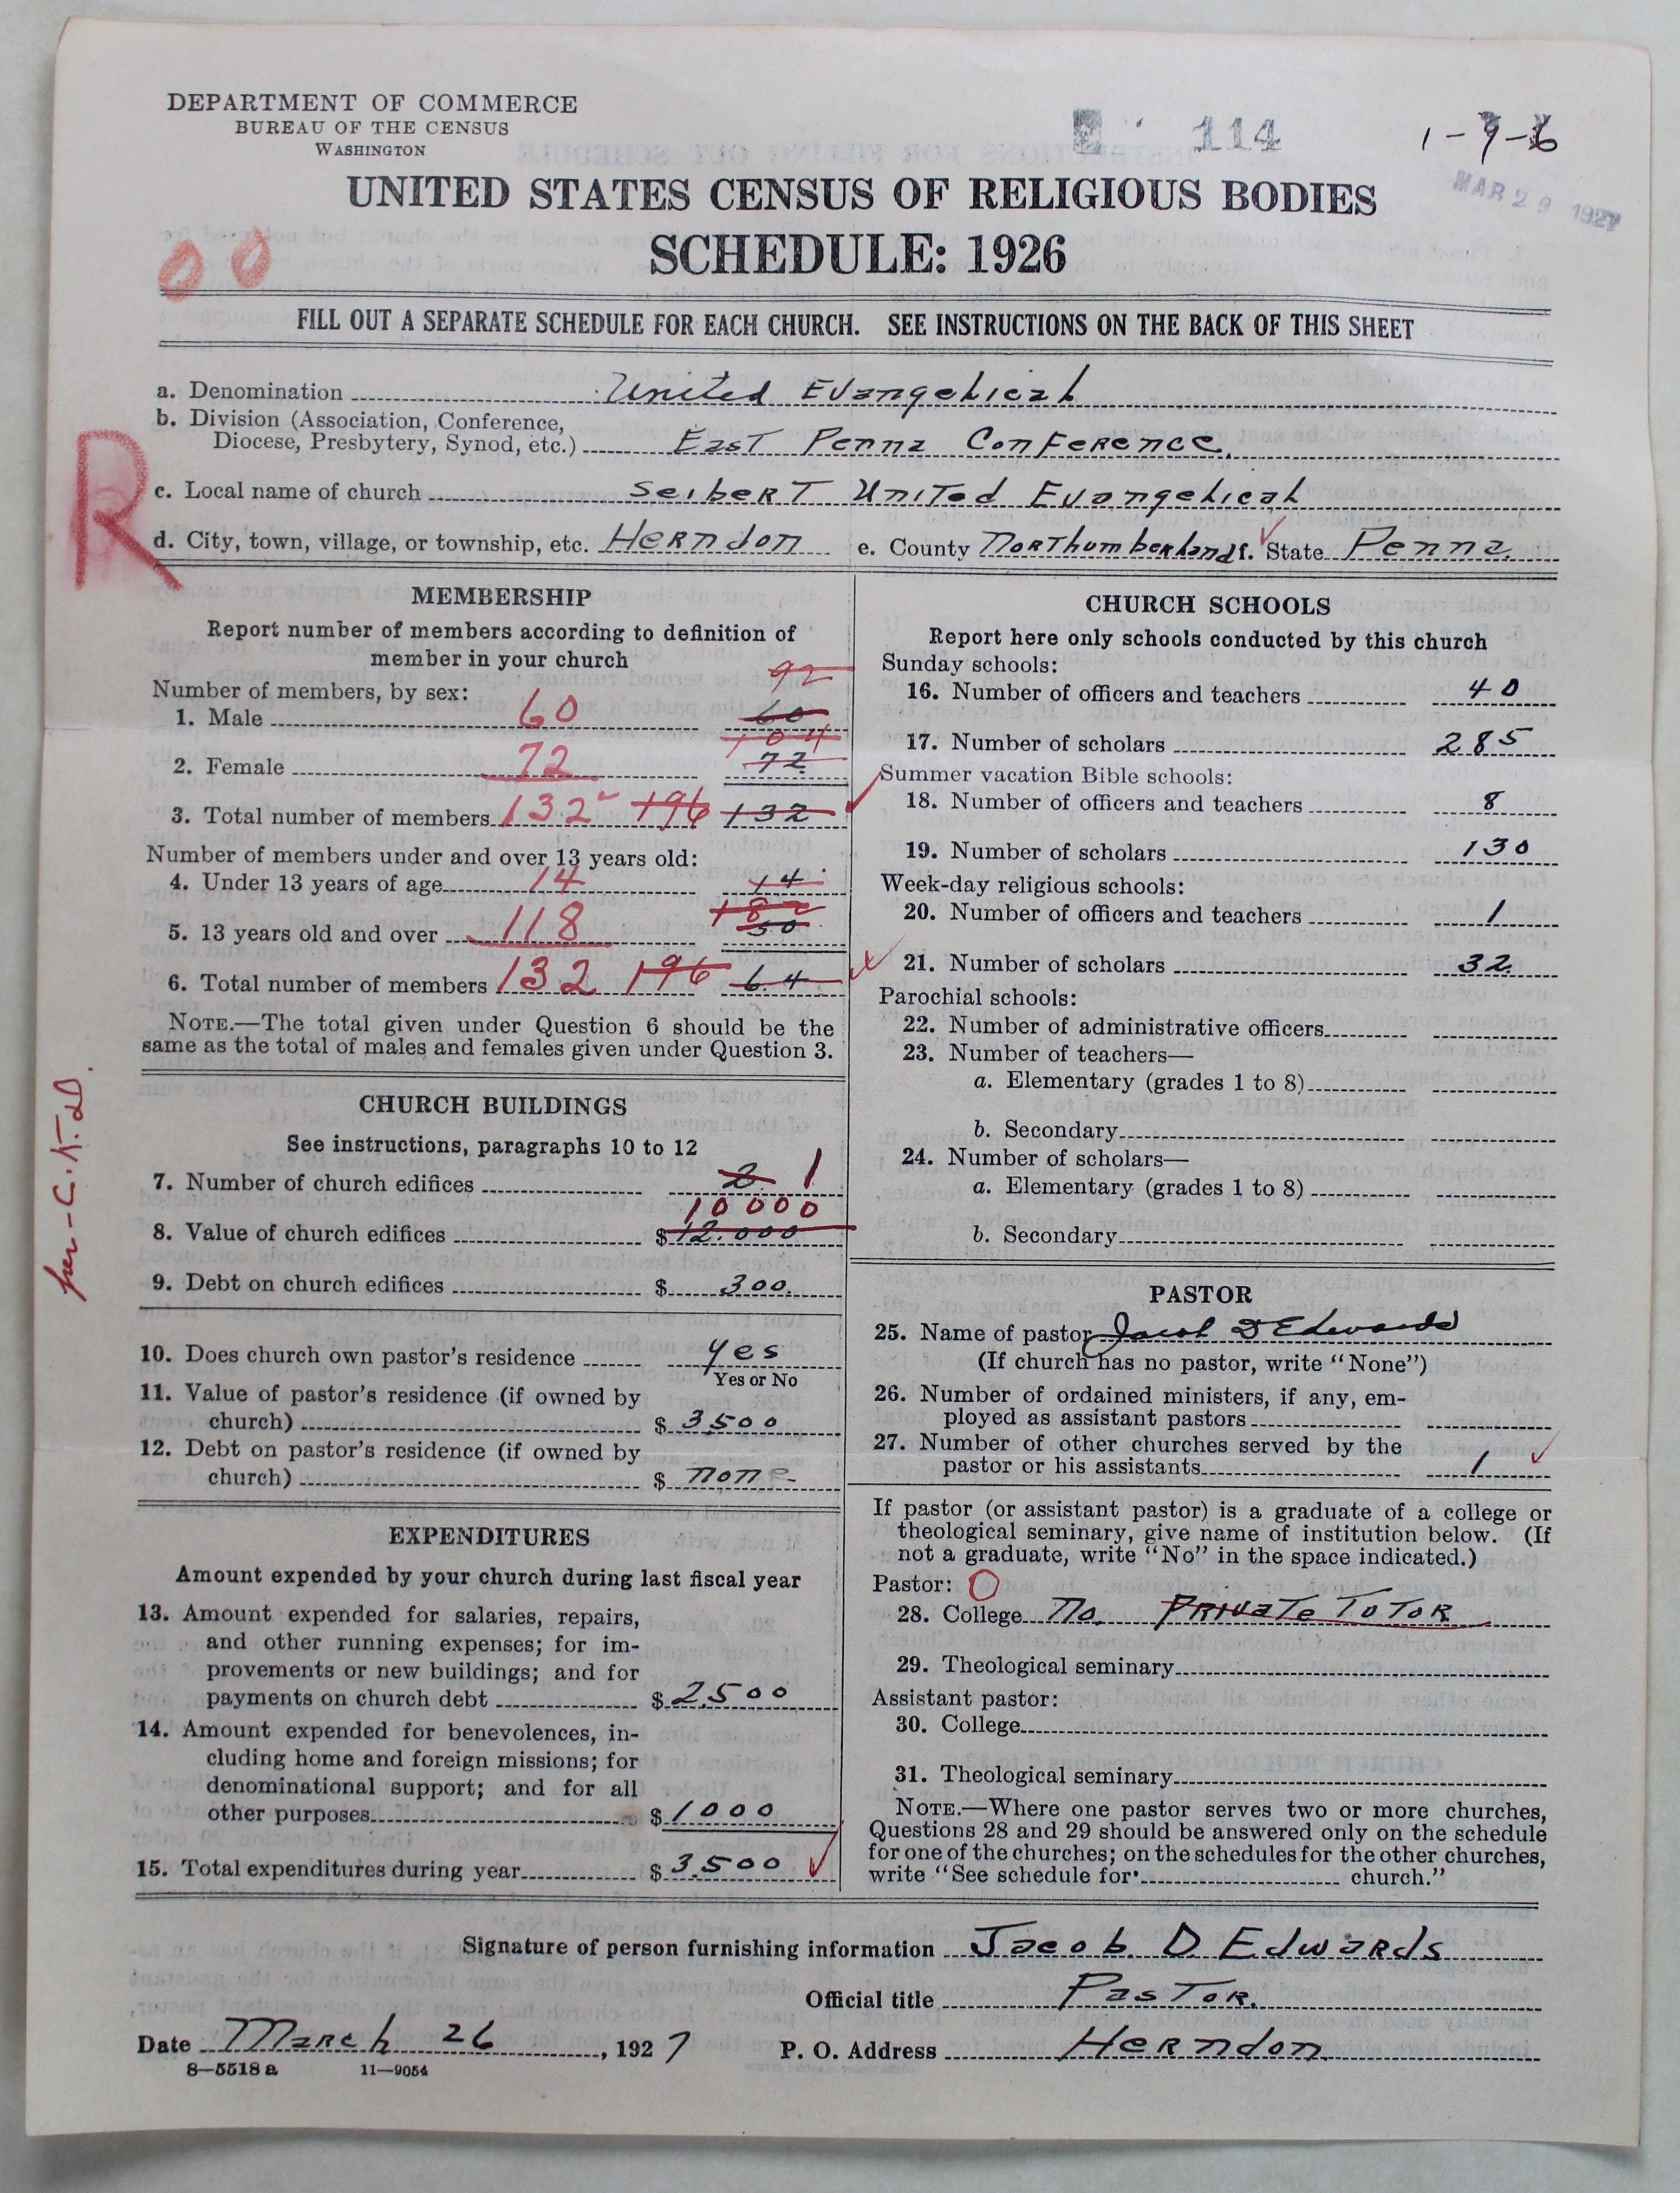 DEPARTMENT OF COMMERCE
BUREAU OF THE CENSUS
WASHINGTON
114
1-9-6
MAR 29 1927
UNITED STATES CENSUS OF RELIGIOUS BODIES
SCHEDULE: 1926
00
FILL OUT A SEPARATE SCHEDULE FOR EACH CHURCH. SEE INSTRUCTIONS ON THE BACK OF THIS SHEET
R
a. Denomination United Evangelical
b. Division (Association, Conference,
Diocese, Presbytery, Synod, etc.) East Penna Conference.
c. Local name of church Seibert United Evangelical
d. City, town, village, or township, etc. Herndon e. County Northumberland f. State Penna.
MEMBERSHIP
Report number of members according to definition of
member in your church
92
Number of members, by sex:
1. Male 60 60
104
2. Female 72 72
3. Total number of members 132 196 132
Number of members under and over 13 years old:
4. Under 13 years of age 14 14
182
5. 13 years old and over 118 50
6. Total number of members 132 196 64
NOTE.—The total given under Question 6 should be the
same as the total of males and females given under Question 3.
CHURCH BUILDINGS
See instructions, paragraphs 10 to 12
7. Number of church edifices 2 1
10000
8. Value of church edifices $12.000
9. Debt on church edifices $300.
10. Does church own pastor's residence yes
Yes or No
11. Value of pastor's residence (if owned by
church) $3500
12. Debt on pastor's residence (if owned by
church) $none
EXPENDITURES
Amount expended by your church during last fiscal year
13. Amount expended for salaries, repairs,
and other running expenses; for im-
provements or new buildings; and for
payments on church debt $2500
14. Amount expended for benevolences, in-
cluding home and foreign missions; for
denominational support; and for all
other purposes $1000
15. Total expenditures during year $3500
CHURCH SCHOOLS
Report here only schools conducted by this church
Sunday schools:
16. Number of officers and teachers 40
17. Number of scholars 285
Summer vacation Bible schools:
18. Number of officers and teachers 8
19. Number of scholars 130
Week-day religious schools:
20. Number of officers and teachers 1
21. Number of scholars 32
Parochial schools:
22. Number of administrative officers
23. Number of teachers—
a. Elementary (grades 1 to 8)
b. Secondary
24. Number of scholars—
a. Elementary (grades 1 to 8)
b. Secondary
PASTOR
25. Name of pastor Jacob D Edwards
(If church has no pastor, write "None")
26. Number of ordained ministers, if any, em-
ployed as assistant pastors
27. Number of other churches served by the
pastor or his assistants 1
If pastor (or assistant pastor) is a graduate of a college or
theological seminary, give name of institution below. (If
not a graduate, write "No" in the space indicated.)
Pastor: O
28. College No. Private Tutor
29. Theological seminary
Assistant pastor:
30. College
31. Theological seminary
NOTE.—Where one pastor serves two or more churches,
Questions 28 and 29 should be answered only on the schedule
for one of the churches; on the schedules for the other churches,
write "See schedule for church."
Signature of person furnishing information Jacob D Edwards
Official title Pastor.
Date March 26, 1927 P. O. Address Herndon
8—5518 a 11—9054